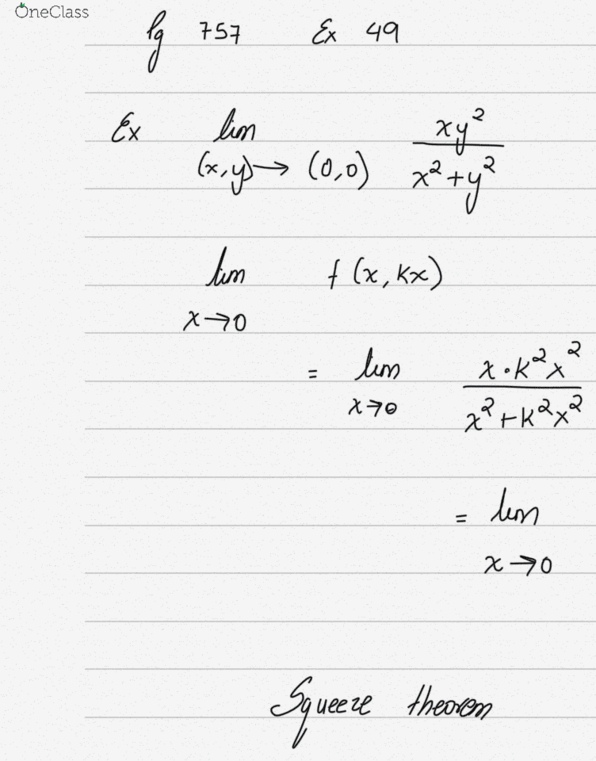 OneClass
pg 757 Ex 49
Ex lim (x,y)→(0,0) xy²/(x²+y²)
lim x→0 f(x,kx)
= lim x→0 x·k²x²/(x²+k²x²)
= lim x→0
Squeeze theorem